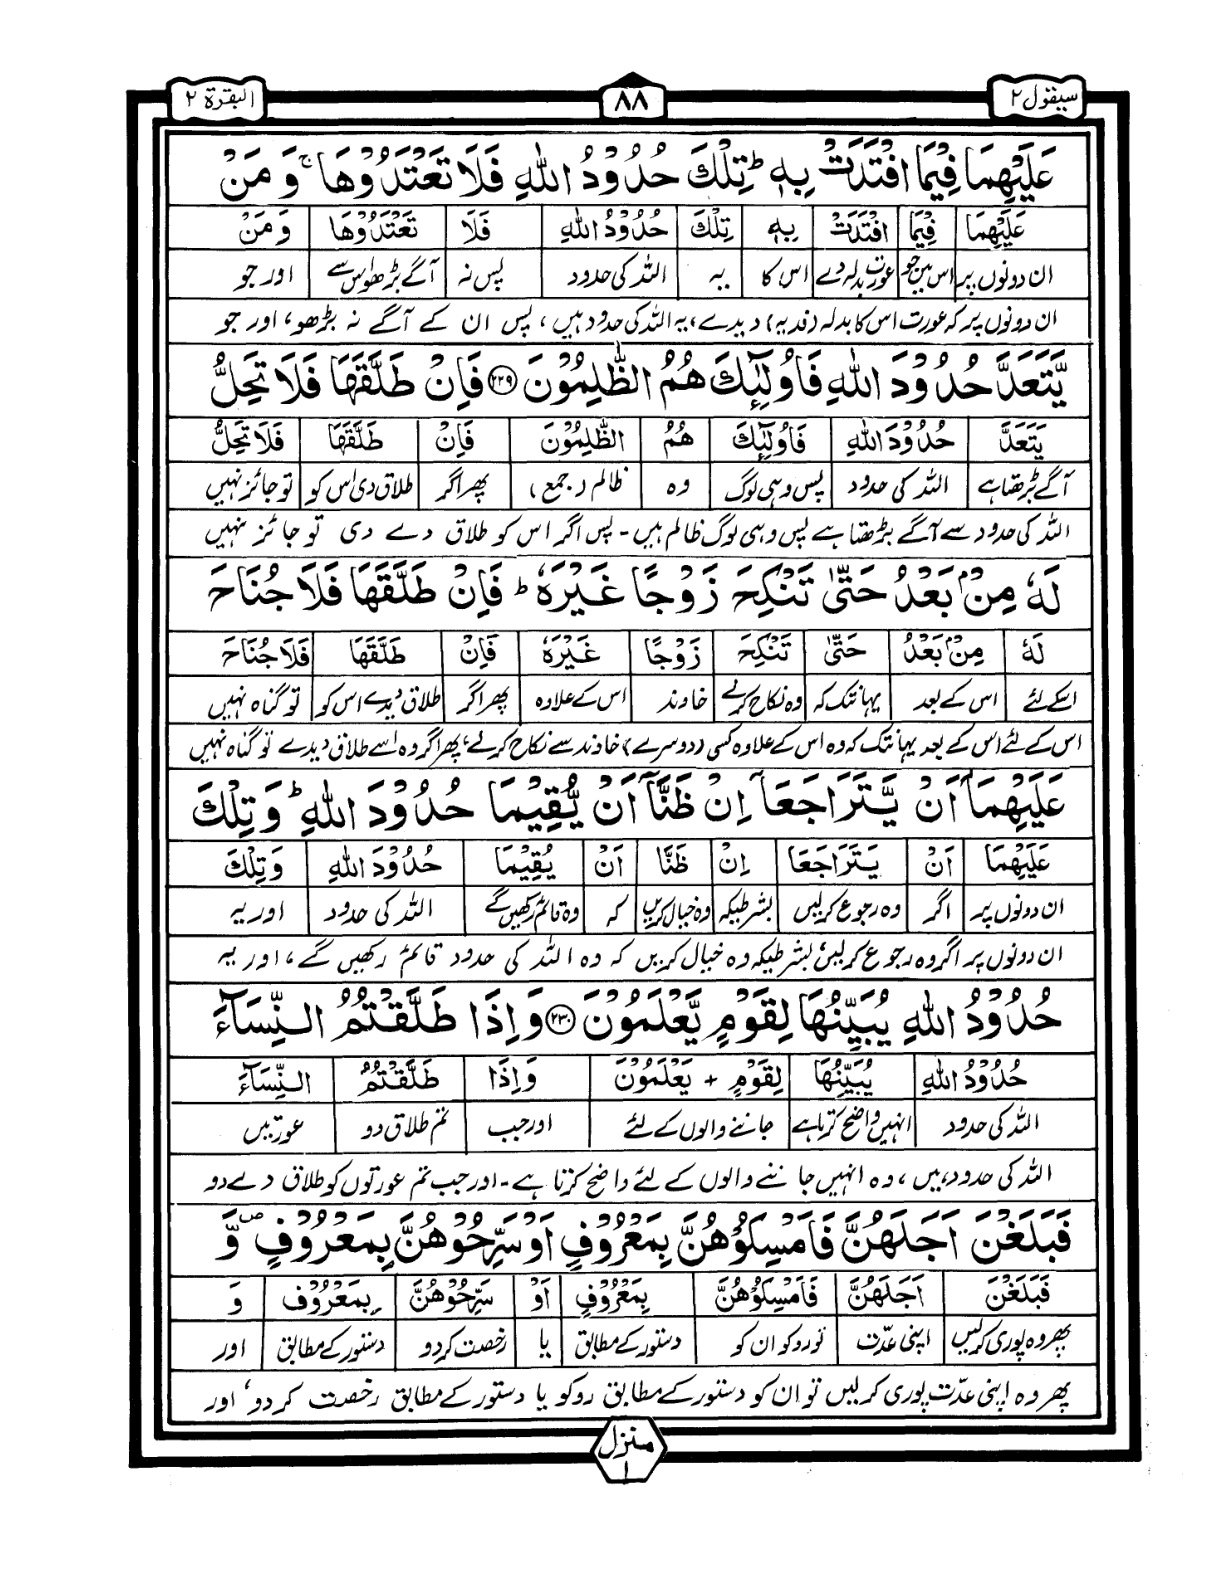 سيقول ٢
٨٨
البقرة ٢
عَلَيْهِمَا فِيْمَا افْتَدَتْ بِهٖ ؕ تِلْكَ حُدُوْدُ اللّٰهِ فَلَا تَعْتَدُوْهَا ۚ وَ مَنْ
عَلَيْهِمَا فِيْمَا افْتَدَتْ بِهٖ تِلْكَ حُدُوْدُ اللّٰهِ فَلَا تَعْتَدُوْهَا وَ مَنْ
ان دونوں پر اس میں جو عورت بدلہ دے اس کا یہ اللہ کی حدود پس نہ آگے بڑھو اس سے اور جو
ان دونوں پر کہ عورت اس کا بدلہ (فدیہ) دیدے، یہ اللہ کی حدود ہیں، پس ان کے آگے نہ بڑھو، اور جو
يَّتَعَدَّ حُدُوْدَ اللّٰهِ فَاُولٰٓئِكَ هُمُ الظّٰلِمُوْنَ ۝٢٢٩ فَاِنْ طَلَّقَهَا فَلَا تَحِلُّ
يَتَعَدَّ حُدُوْدَ اللّٰهِ فَاُولٰٓئِكَ هُمُ الظّٰلِمُوْنَ فَاِنْ طَلَّقَهَا فَلَا تَحِلُّ
آگے بڑھتا ہے اللہ کی حدود پس وہی لوگ وہ ظالم (جمع) پھر اگر طلاق دی اس کو تو جائز نہیں
اللہ کی حدود سے آگے بڑھتا ہے پس وہی لوگ ظالم ہیں - پس اگر اس کو طلاق دے دی تو جائز نہیں
لَهٗ مِنْۢ بَعْدُ حَتّٰى تَنْكِحَ زَوْجًا غَيْرَهٗ ؕ فَاِنْ طَلَّقَهَا فَلَا جُنَاحَ
لَهٗ مِنْۢ بَعْدُ حَتّٰى تَنْكِحَ زَوْجًا غَيْرَهٗ فَاِنْ طَلَّقَهَا فَلَا جُنَاحَ
اسکے لئے اس کے بعد یہانتک کہ وہ نکاح کرلے خاوند اس کے علاوہ پھر اگر طلاق دیدے اس کو تو گناہ نہیں
اس کے لئے اس کے بعد یہانتک کہ وہ اس کے علاوہ کسی (دوسرے) خاوند سے نکاح کرلے، پھر اگر وہ اسے طلاق دیدے تو گناہ نہیں
عَلَيْهِمَاۤ اَنْ يَّتَرَاجَعَاۤ اِنْ ظَنَّاۤ اَنْ يُّقِيْمَا حُدُوْدَ اللّٰهِ ؕ وَ تِلْكَ
عَلَيْهِمَا اَنْ يَتَرَاجَعَا اِنْ ظَنَّا اَنْ يُقِيْمَا حُدُوْدَ اللّٰهِ وَ تِلْكَ
ان دونوں پر اگر وہ رجوع کرلیں بشرطیکہ وہ خیال کریں کہ وہ قائم رکھیں گے اللہ کی حدود اور یہ
ان دونوں پر اگر وہ رجوع کرلیں بشرطیکہ وہ خیال کریں کہ وہ اللہ کی حدود قائم رکھیں گے، اور یہ
حُدُوْدُ اللّٰهِ يُبَيِّنُهَا لِقَوْمٍ يَّعْلَمُوْنَ ۝٢٣٠ وَ اِذَا طَلَّقْتُمُ النِّسَآءَ
حُدُوْدُ اللّٰهِ يُبَيِّنُهَا لِقَوْمٍ + يَعْلَمُوْنَ وَ اِذَا طَلَّقْتُمُ النِّسَآءَ
اللہ کی حدود انہیں واضح کرتا ہے جاننے والوں کے لئے اور جب تم طلاق دو عورتیں
اللہ کی حدود ہیں، وہ انہیں جاننے والوں کے لئے واضح کرتا ہے - اور جب تم عورتوں کو طلاق دے دو
فَبَلَغْنَ اَجَلَهُنَّ فَاَمْسِكُوْهُنَّ بِمَعْرُوْفٍ اَوْ سَرِّحُوْهُنَّ بِمَعْرُوْفٍ ۪ وَّ
فَبَلَغْنَ اَجَلَهُنَّ فَاَمْسِكُوْهُنَّ بِمَعْرُوْفٍ اَوْ سَرِّحُوْهُنَّ بِمَعْرُوْفٍ وَ
پھر وہ پوری کرلیں اپنی عدّت تو روکو ان کو دستور کے مطابق یا رخصت کردو دستور کے مطابق اور
پھر وہ اپنی عدّت پوری کرلیں تو ان کو دستور کے مطابق روکو یا دستور کے مطابق رخصت کردو، اور
منزل
١